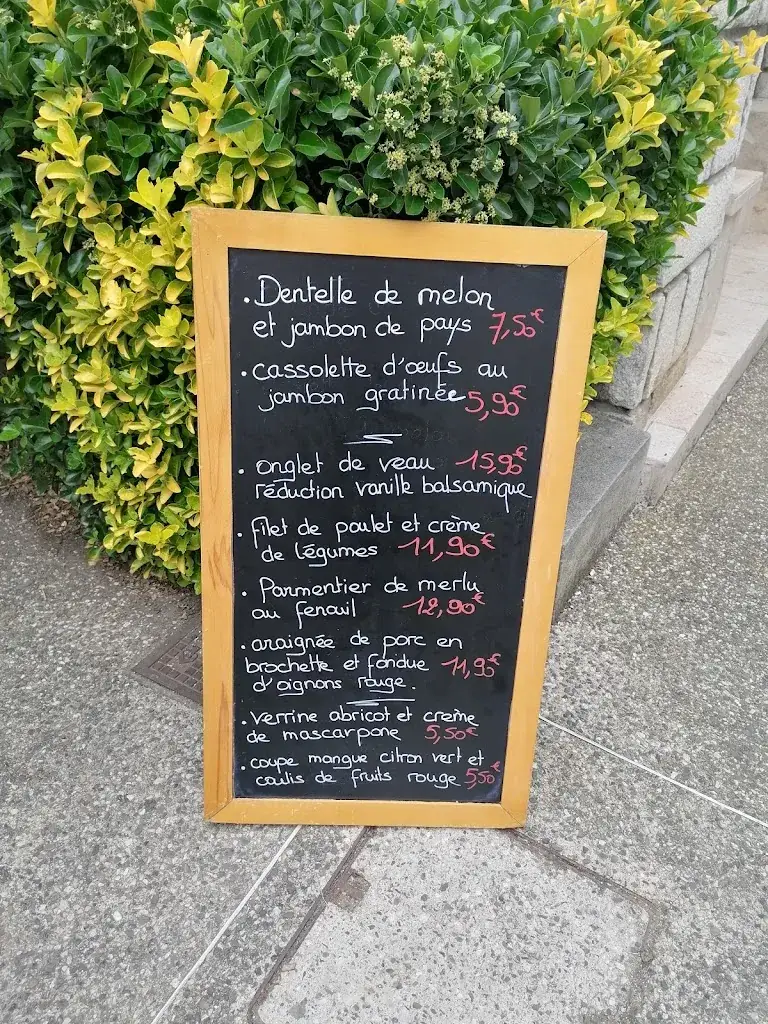 . Dentelle de melon
et jambon de pays 7,50€
. cassolette d'œufs au
jambon gratinée 5,90€
. onglet de veau 15,90€
réduction vanille balsamique
. filet de poulet et crème
de légumes 11,90€
. Parmentier de merlu
au fenouil 12,90€
. araignée de porc en
brochette et fondue 11,90€
d'oignons rouge.
. verrine abricot et crème
de mascarpone 5,50€
. coupe mangue citron vert et
coulis de fruits rouge 5,50€